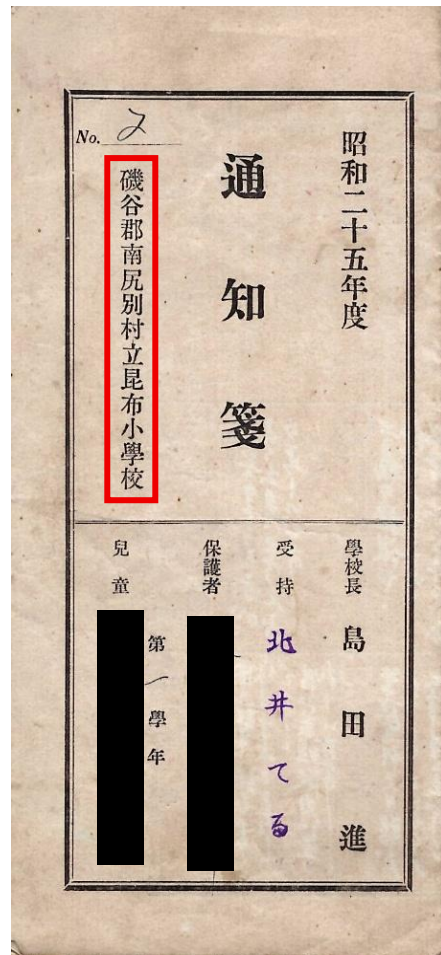 昭和二十五年度
通知箋
No. 2
磯谷郡南尻別村立昆布小學校
學校長 島田進
受持 北井てる
保護者
第一學年
兒童